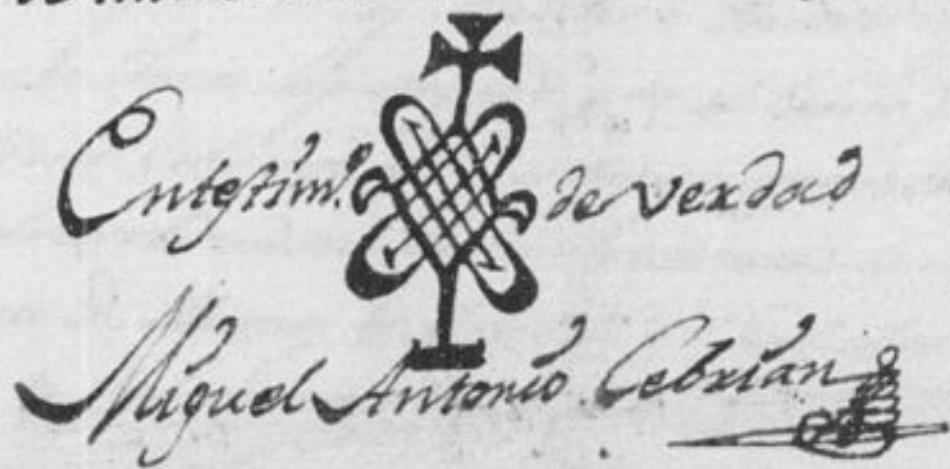 En testim.º de verdad
Miguel Antonio Cebrian